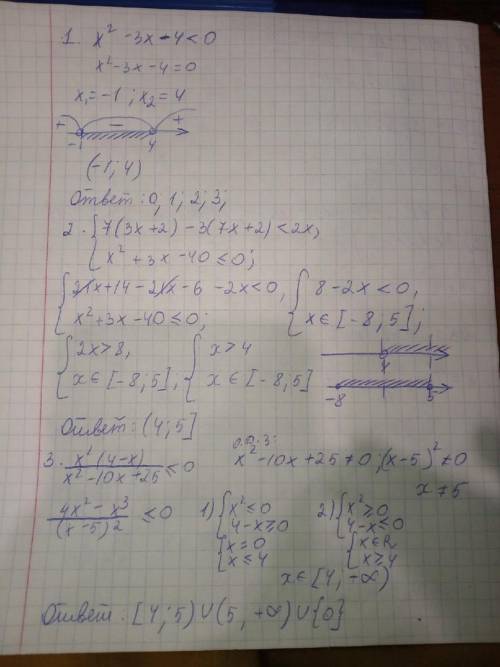 1. x² -3x -4<0
x²-3x-4=0
x₁=-1; x₂=4
+ - +
-1 4
(-1; 4)
Ответ: 0, 1; 2; 3;
2. {7(3x+2) -3(7x+2)<2x,
{x² +3x -40 ≤0;
{21x+14-21x-6 -2x<0, {8-2x<0,
{x²+3x-40≤0; {x∈[-8;5];
{2x>8, {x>4
{x∈[-8;5], {x∈[-8;5]
4
-8 5
Ответ: (4; 5]
3. x²(4-x)/(x²-10x+25) ≤0 о.д.з:
x²-10x+25≠0; (x-5)²≠0
x≠5
(4x²-x³)/(x-5)² ≤0 1) {x²≤0 2) {x²≥0
{4-x≥0 {4-x≤0
{x=0 {x∈R
{x≤4 {x≥4
x∈[4, +∞)
Ответ: [4; 5)∪(5, +∞)∪{0}